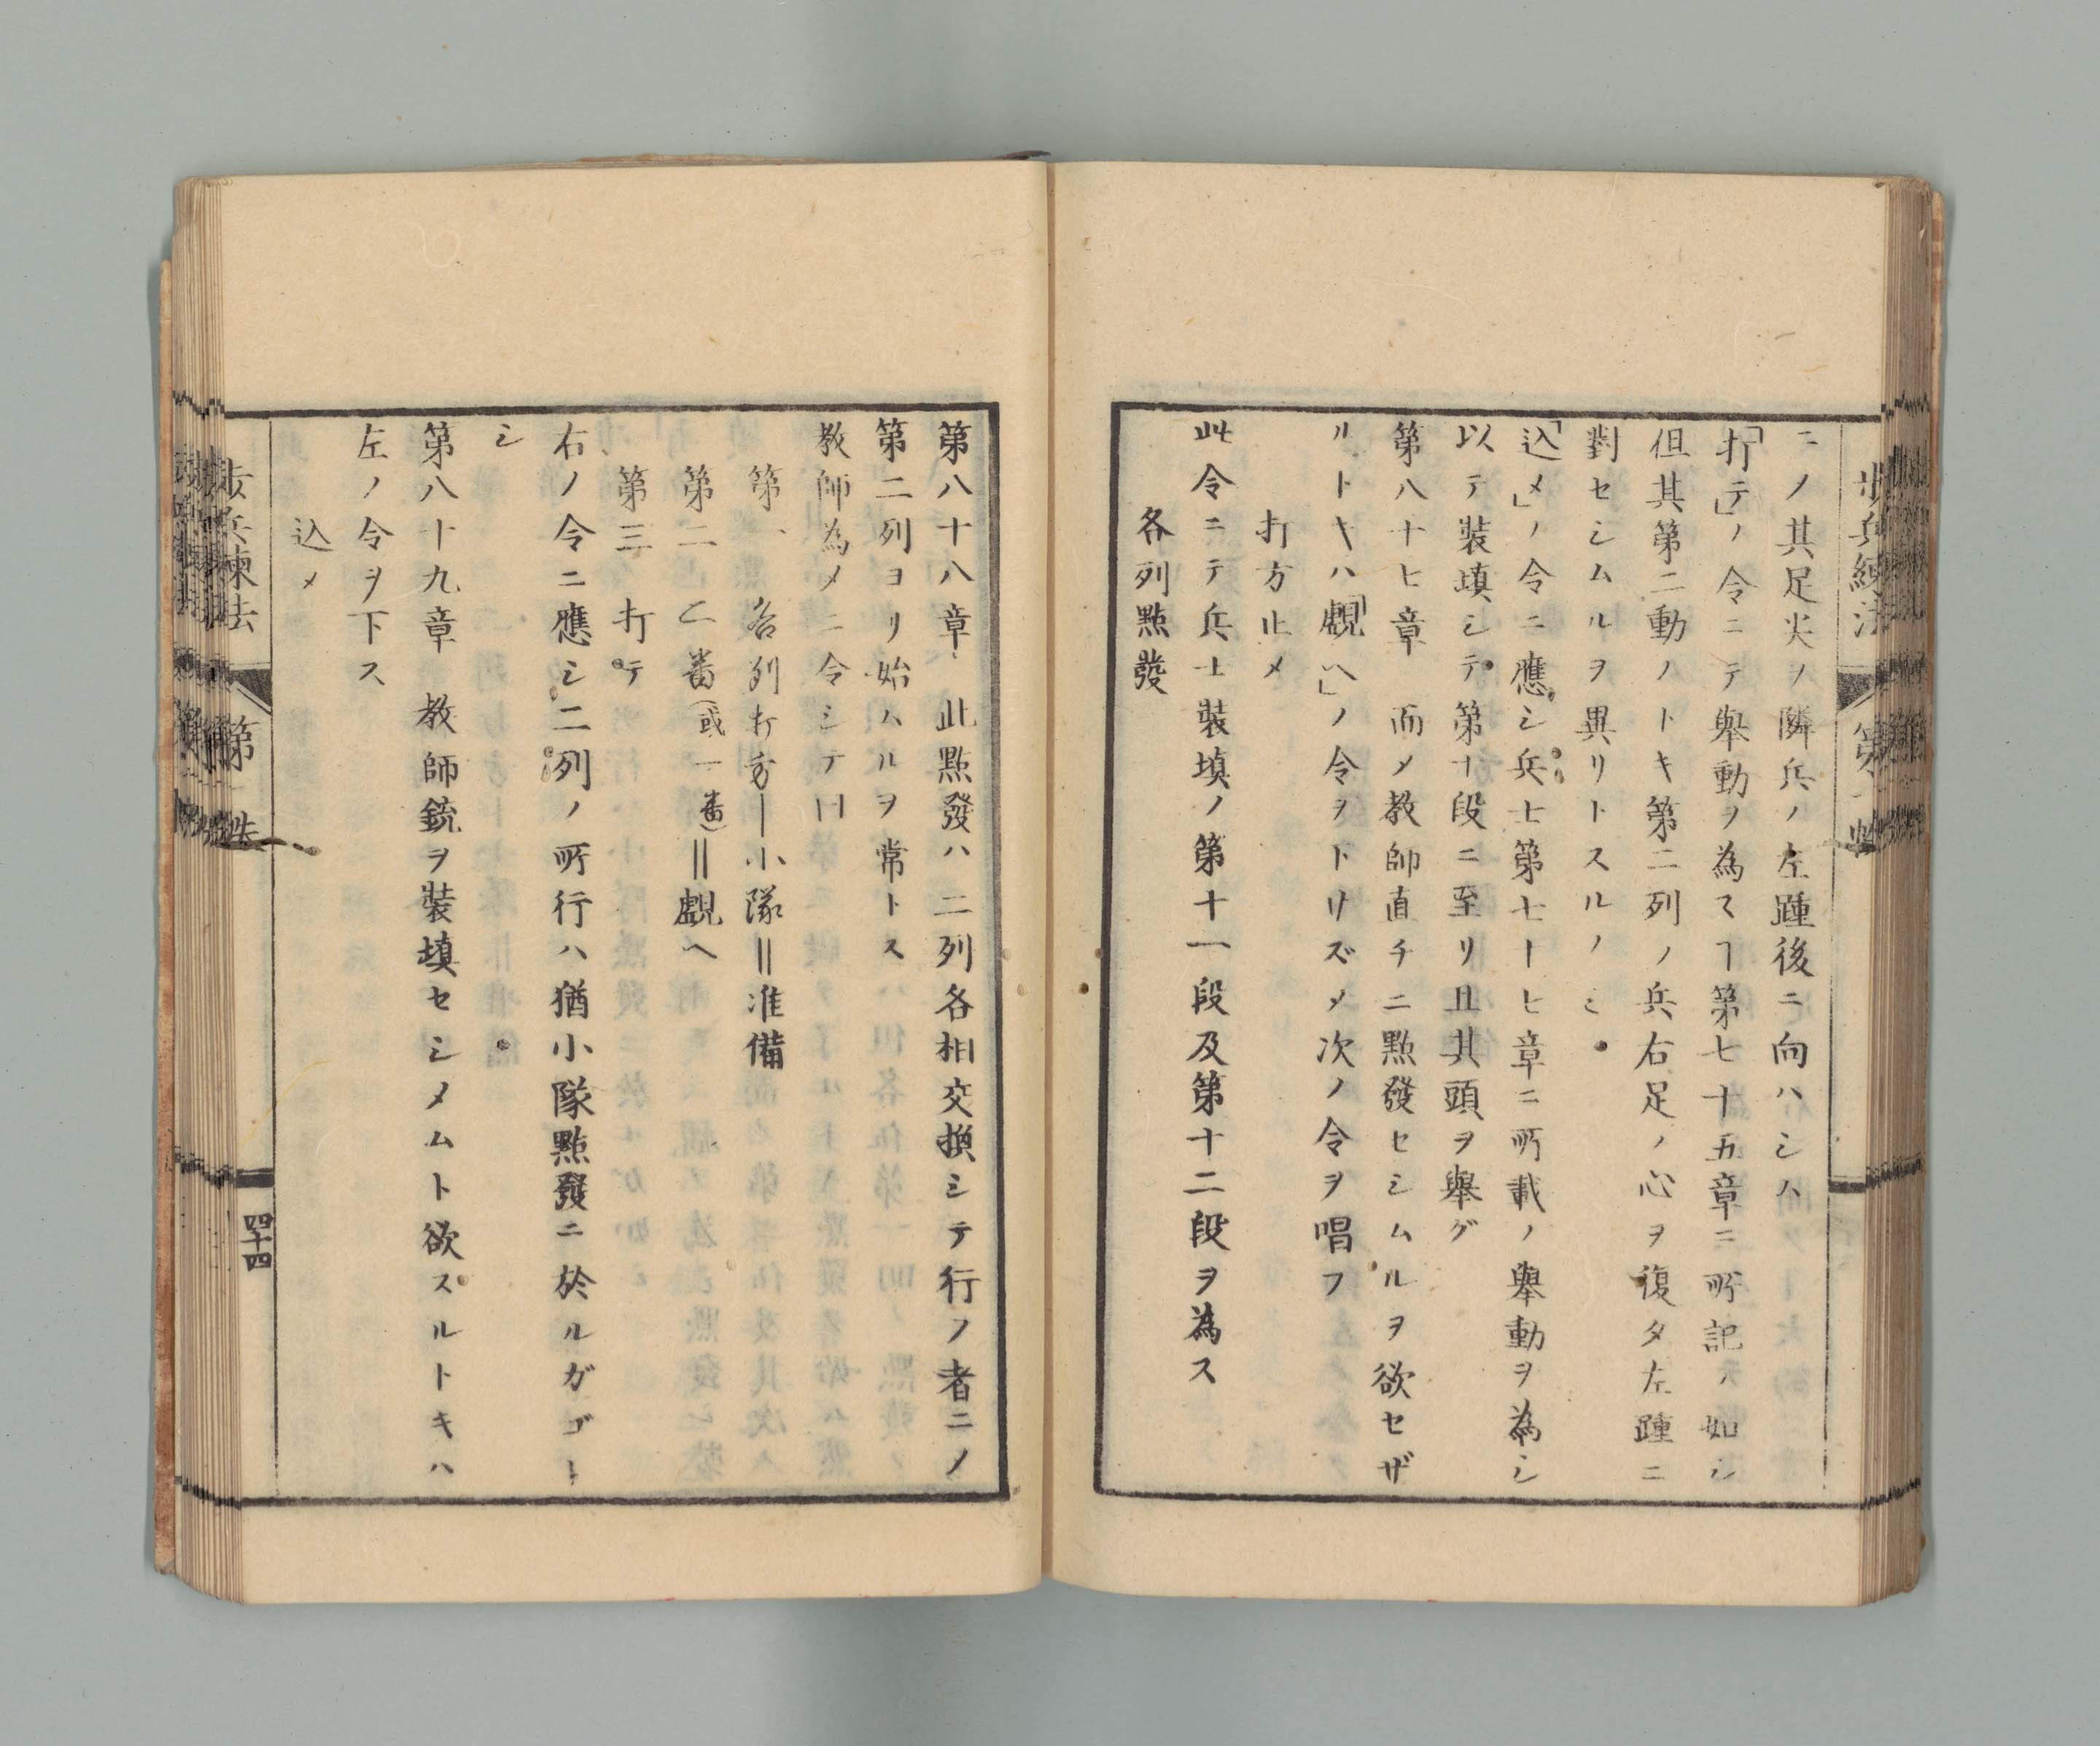 歩兵練法 第一
ニノ其足尖ノ隣兵ノ左踵後ニ向ハシム
「打テ」ノ令ニテ舉動ヲ為スヿ第七十五章ニ所記ノ如シ
但其第二動ノトキ第二列ノ兵右足ノ心ヲ復タ左踵ニ
對セシムルヲ異リトスルノミ
「込メ」ノ令ニ應シ兵士第七十七章ニ所載ノ舉動ヲ為シ
以テ装填シテ第十段ニ至リ且其頭ヲ舉グ
第八十七章 而メ教師直チニ㸃發セシムルヲ欲セザ
ルトキハ「覷ヘ」ノ令ヲトリズメ次ノ令ヲ唱フ
打方止メ
此令ニテ兵士装填ノ第十一段及第十二段ヲ為ス
各列㸃發
第八十八章 此㸃發ハ二列各相交換シテ行フ者ニメ
第二列ヨリ始ハルヲ常トス
教師為メニ令シテ曰
第一 各列打方|小隊‖准備
第二 乙番(或一番)‖覷ヘ
第三 打テ
右ノ令ニ應シ二列ノ所行ハ猶小隊㸃發ニ於ルガゴト
シ
第八十九章 教師銃ヲ装填セシメムト欲スルトキハ
左ノ令ヲ下ス
込メ
歩兵練法 第一 四十四